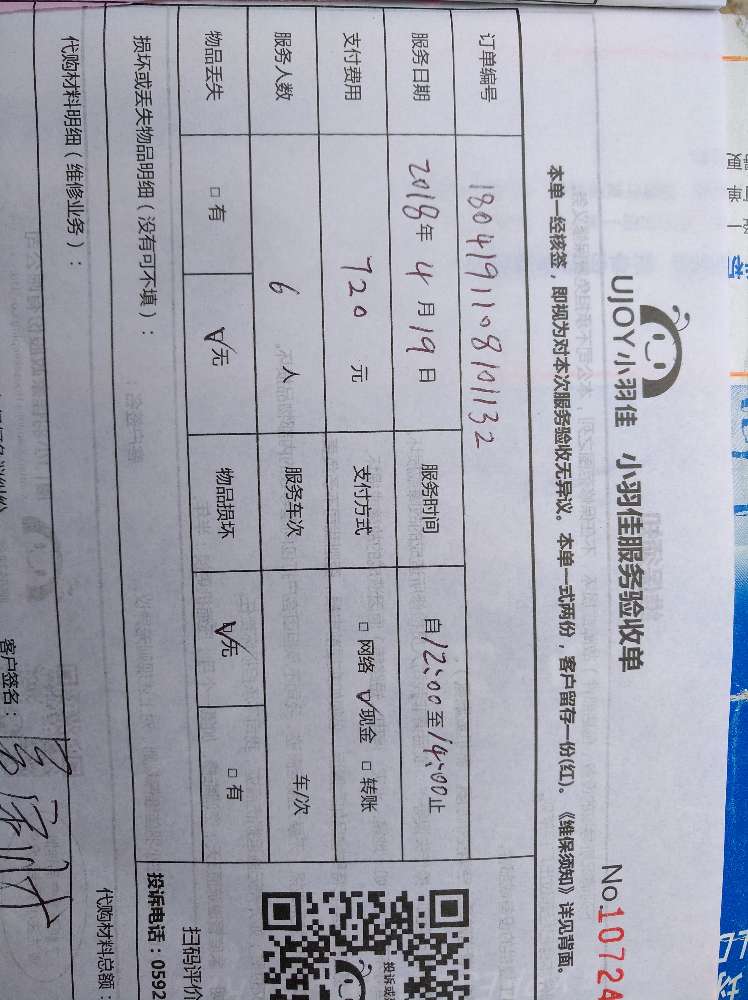 UJOY小羽佳 小羽佳服务验收单
No.10724
本单一经核签，即视为对本次服务验收无异议。本单一式两份，客户留存一份(红)。《维保须知》详见背面。
订单编号 1804191108101132
服务日期 2018年4月19日 服务时间 自12:00至14:00止
支付费用 720元 支付方式 □网络 √现金 □转账
服务人数 6人 服务车次 车/次
物品丢失 □有 √无 物品损坏 √无 □有
损坏或丢失物品明细（没有可不填）：
代购材料明细（维修业务）：
投诉或
扫码评价
投诉电话：0592
代购材料总额：
客户签名：